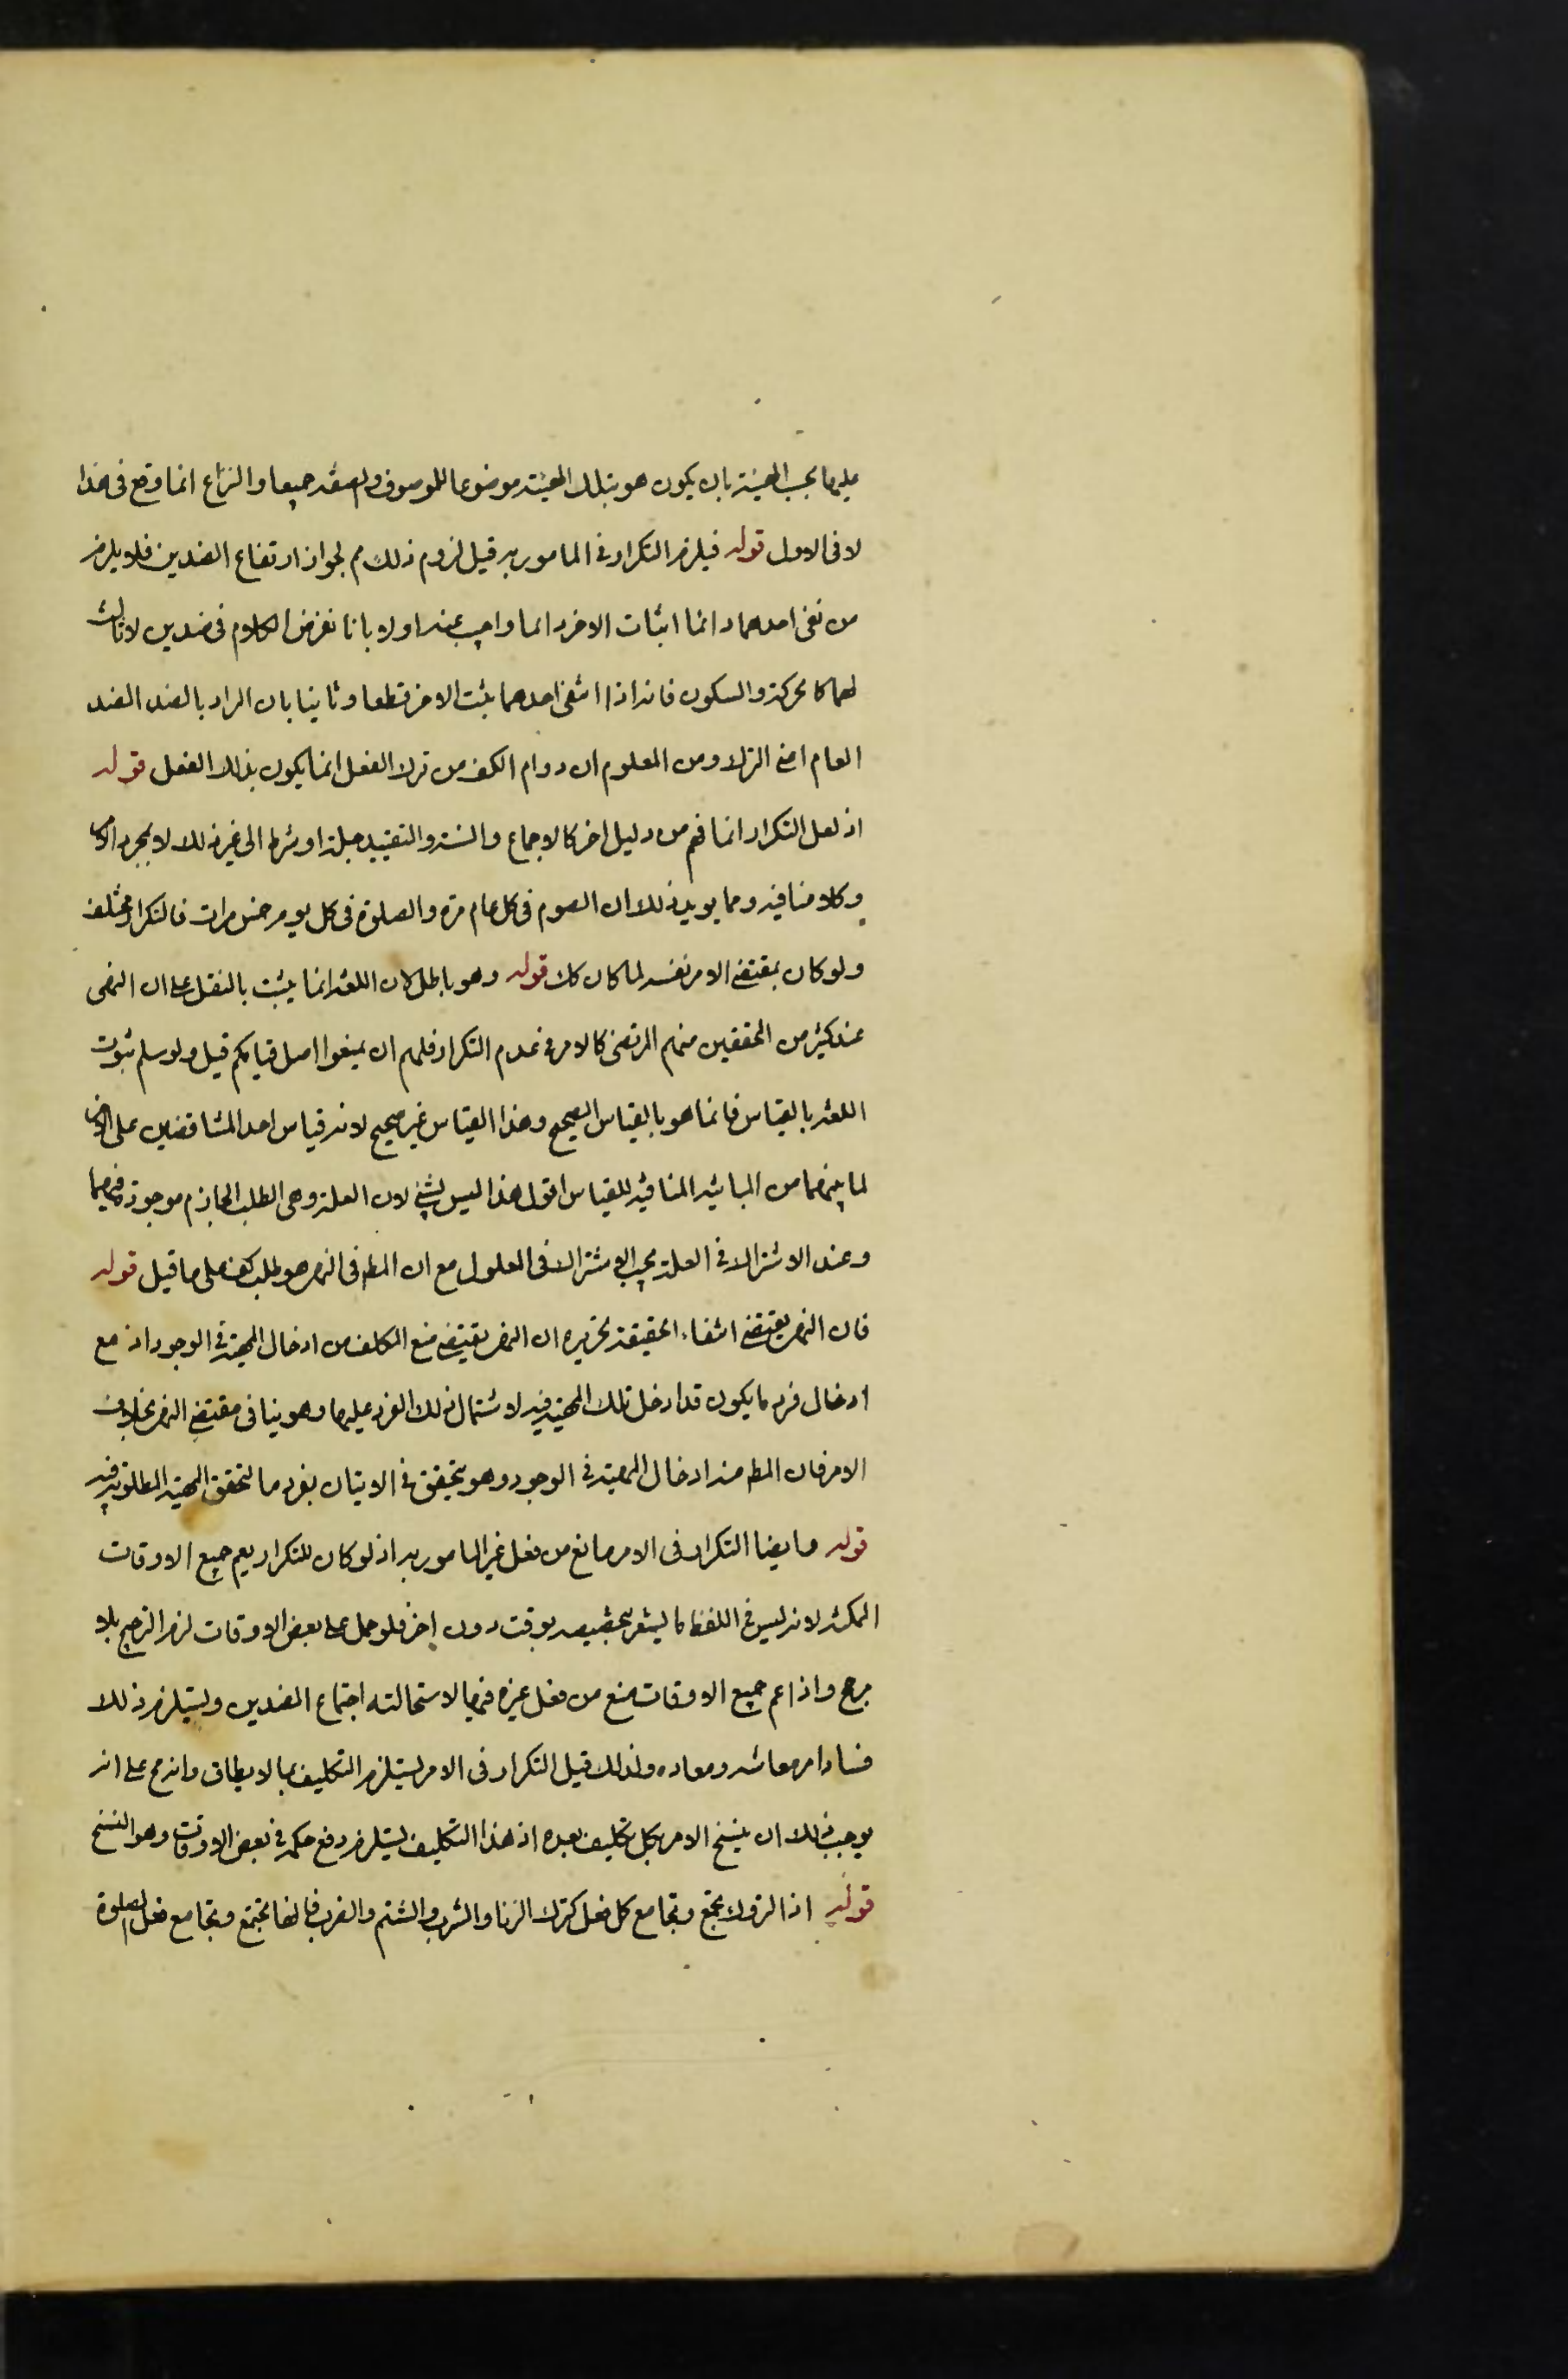 عليهما بحسب الهيئة بان يكون هو بتلك الهيئة موضوعا للموصوف والصفة جميعا والنزاع انما وقع في هذا
لا في الاول قوله فيلزم التكرار في المامور به قيل لزوم ذلك مم لجواز ارتفاع الضدين فلا يلزم
من نفي احدهما دائما اثبات الاخر دائما واجيب عنه اولا بانا نفرض الكلام في ضدين لا ثالث
لهما كالحركة والسكون فانه اذا انتفى احدهما يثبت الاخر قطعا وثانيا بان المراد بالضد الضد
العام اعني الترك ومن المعلوم ان دوام الكف من ترك الفعل انما يكون بذلك الفعل قوله
اذ لعل التكرار انما فهم من دليل اخر كالاجماع والسنة والتقييد بعلة او شرط الى غير ذلك لا بمجرد الامر
وكلامنا فيه ومما يويد ذلك ان الصوم في كل عام مرة والصلوة في كل يوم خمس مرات فالتكرار مختلف
ولو كان بمقتضى الامر نفسه لما كان كك قوله وهو باطل لان اللغة انما يثبت بالنقل على ان النهي
عند كثير من المحققين منهم المرتضى كالامر في عدم التكرار فلهم ان يمنعوا اصل قياسكم قيل ولو سلم ثبوت
اللغة بالقياس فانما هو بالقياس الصحيح وهذا القياس غير صحيح لانه قياس احد المتناقضين على الاخر
لما بينهما من المباينة المنافية للقياس اقول هذا ليس بشئ لان العلة وهي الطلب الجازم موجودة فيهما
وعند الاشتراك في العلة يجب الاشتراك في المعلول مع ان المط في النهي هو طلب كف على ما قيل قوله
فان النهي يقتضي انتفاء الحقيقة تحريره ان النهي يقتضي منع المكلف من ادخال المهية في الوجود اذ مع
ادخال فرد ما يكون قد ادخل تلك المهية فيه لاشتمال ذلك الفرد عليها وهو ينافي مقتضى النهي بخلاف
الامر فان المط منه ادخال المهية في الوجود وهو يتحقق في الاتيان بفرد ما لتحقق المهية المطلوبة فيه
قوله وايضا التكرار في الامر مانع من فعل غير المامور به اذ لو كان للتكرار يعم جميع الاوقات
الممكنة لانه ليس في اللفظ ما يشعر بتخصيصه بوقت دون اخر فلو حمل على بعض الاوقات لزم الترجيح بلا
مرجح واذا عم جميع الاوقات منع من فعل غيره فيها لاستحالته اجتماع الضدين ويستلزم ذلك
فساد امر معاشه ومعاده ولذلك قيل التكرار في الامر يستلزم التكليف بما لا يطاق وانه مم على انه
يوجب ذلك ان ينسخ الامر بكل تكليف بعده اذ هذا التكليف يستلزم رفع حكمه في بعض الاوقات وهو النسخ
قوله اذ التروك تجتمع وتجامع كل فعل كترك الزنا والشرب والشتم والضرب فانها تجتمع وتجامع فعل الصلوة